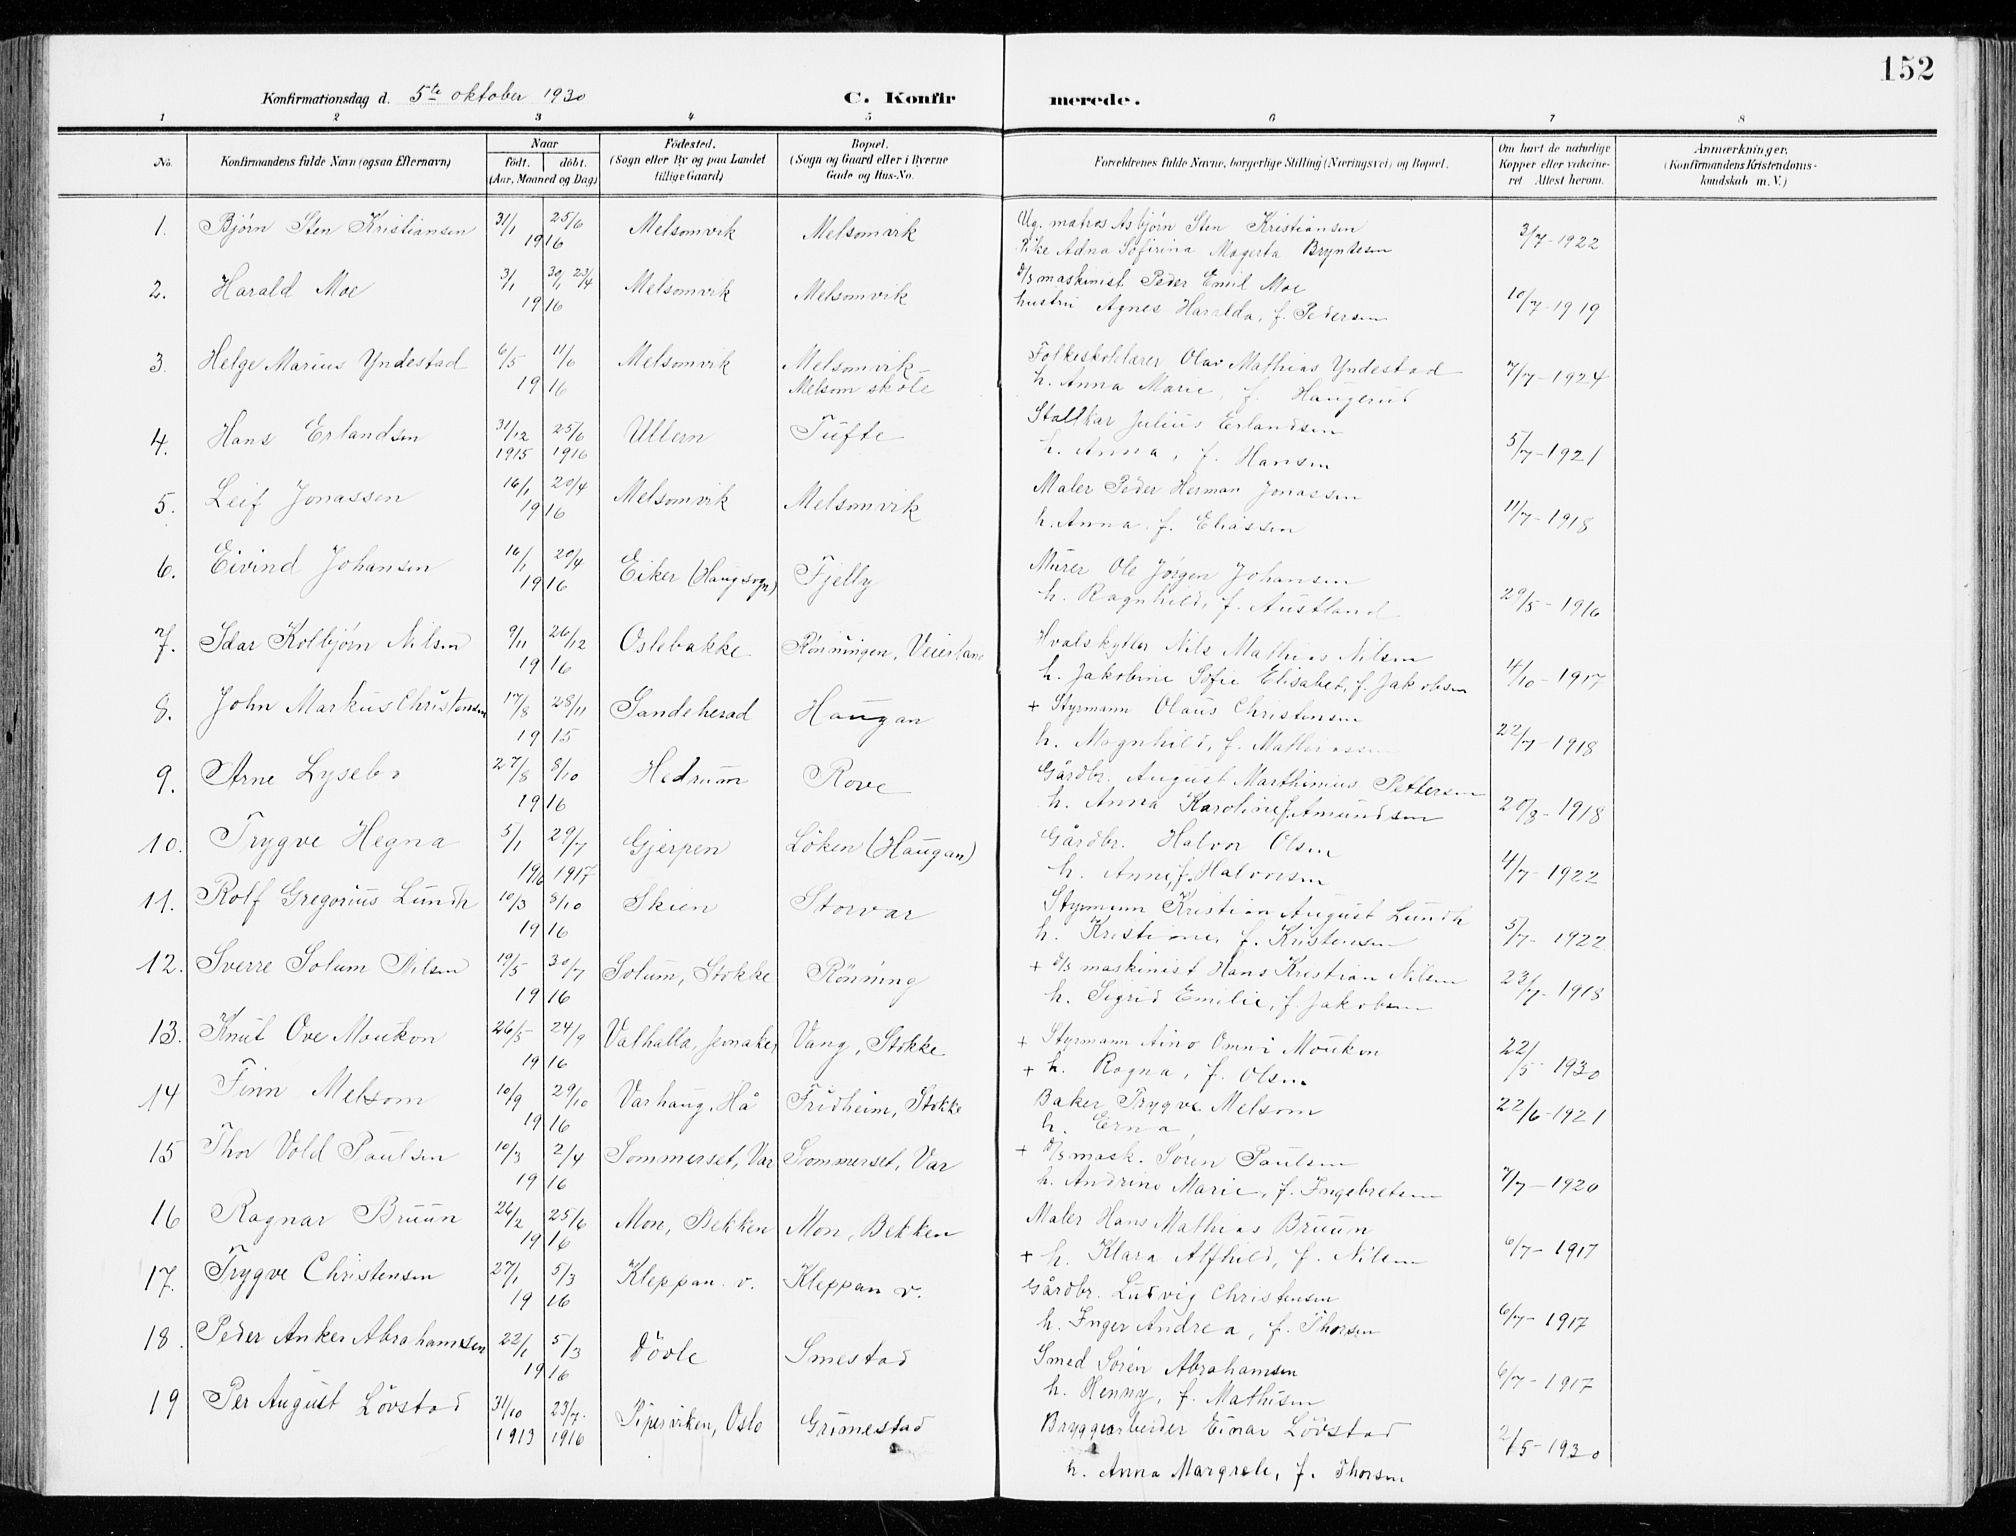 152
Konfirmationsdag d. 5te oktober 1930 C. Konfirmerede.
1 2 3 4 5 6 7 8
No. Konfirmandens fulde Navn (ogsaa Efternavn) Naar født. døbt. (Aar, Maaned og Dag) Fødested. (Sogn eller By og paa Landet tillige Gaard) Bopæl. (Sogn og Gaard eller i Byerne Gade og Hus-No. Forældrenes fulde Navne, borgerlige Stilling (Næringsvei) og Bopæl. Om havt de naturlige Kopper eller vakcineret. Attest herom. Anmærkninger. (Konfirmandens Kristendomskundskab m. V.)
1. Bjørn Sten Kristiansen 31/1 25/6 1916 Melsomvik Melsomvik Ug. matros Asbjørn Sten Kristiansen 3/7-1922
Pike Adna Sofirina Magerta Bryntesen
2. Harald Moe 3/1 30/1 23/4 1916 Melsomvik Melsomvik d/s maskinist Peder Emil Moe 10/7-1919
hustru Agnes Haralda, f. Pedersen
3. Helge Marius Yndestad 6/5 11/6 1916 Melsomvik Melsomvik- Melsom skole Folkeskolelærer Olav Mathias Yndestad 7/7-1924
h. Anna Marie, f. Haugerud
4. Hans Erlandsen 31/12 1915 25/6 1916 Ullern Tufte Stallkar Julius Erlandsen 5/7-1921
h. Anna, f. Hansen
5. Leif Jonassen 16/1 20/4 1916 Melsomvik Melsomvik Maler Peder Herman Jonassen 11/7-1918
h. Anna f. Eliassen
6. Eivind Johansen 16/1 20/4 1916 Eiker (Haugsogn) Fjelly Murer Ole Jørgen Johansen 29/5-1916
h. Ragnhild, f. Austland
7. Idar Kolbjørn Nilsen 9/11 26/12 1916 Oslebakke Rønningen, Veierland Hvalskytter Nils Mathias Nilsen 4/10-1917
h. Jakobine Sofie Elisabet, f. Jakobsen
8. John Markus Christensen 17/8 28/11 1915 Sandeherad Haugan + Styrmann Olaus Christensen 22/7-1918
h. Magnhild, f. Mathiassen
9. Arne Lysebo 27/8 8/10 1916 Hedrum Rove Gårdbr. August Marthinius Pettersen 20/8-1918
h. Anna Karoline f. Amundsen
10. Trygve Hegna 5/1 1916 29/7 1917 Gjerpen Løken (Haugan) Gårdbr. Halvor Olsen 4/7-1922
h. Anne f. Halvorsen
11. Rolf Gregorius Lundh 10/3 8/10 1916 Skien Storvar Styrmann Kristian August Lundh 5/7-1922
h. Kristiane, f. Kristensen
12. Sverre Solum Nilsen 19/5 30/7 1916 Solum, Stokke Rønning + d/s maskinist Hans Kristian Nilsen 23/7-1918
h. Sigrid Emilie, f. Jakobsen
13. Knut Ove Moukon 26/5 24/9 1916 Valhalla, Jevnaker Vang, Stokke + Styrmann Aino Omni Moukon 22/5-1930
+ h. Ragna, f. Olsen
14 Finn Melsom 10/9 29/10 1916 Varhaug, Hå Fridheim, Stokke Baker Trygve Melsom 22/6-1921
h. Erna,
15 Thor Vold Paulsen 10/3 2/4 1916 Sommerset, Var Sommerset, Var + d/s mask. Søren Paulsen 7/7-1920
h. Andrine Marie, f. Ingebretsen
16 Ragnar Bruun 26/2 25/6 1916 Mon, Bekken Mon, Bekken Maler Hans Mathias Bruun 6/7-1917
+ h. Klara Alfhild, f. Nilsen
17. Trygve Christensen 27/1 5/3 1916 Kleppan v. Kleppan v. Gårdbr. Ludvig Christensen 6/7-1917
h. Inger Andrea, f. Thorsen
18. Peder Anker Abrahamsen 22/1 5/3 1916 Døvle Smestad Smed Søren Abrahamsen 6/7-1917
h. Henny, f. Mathisen
19 Per August Løvstad 31/10 1913 23/7 1916 Pipervikken, Oslo Grimestad Bryggearbeider Einar Løvstad 2/5-1930
h. Anna Margrete, f. Thorsen